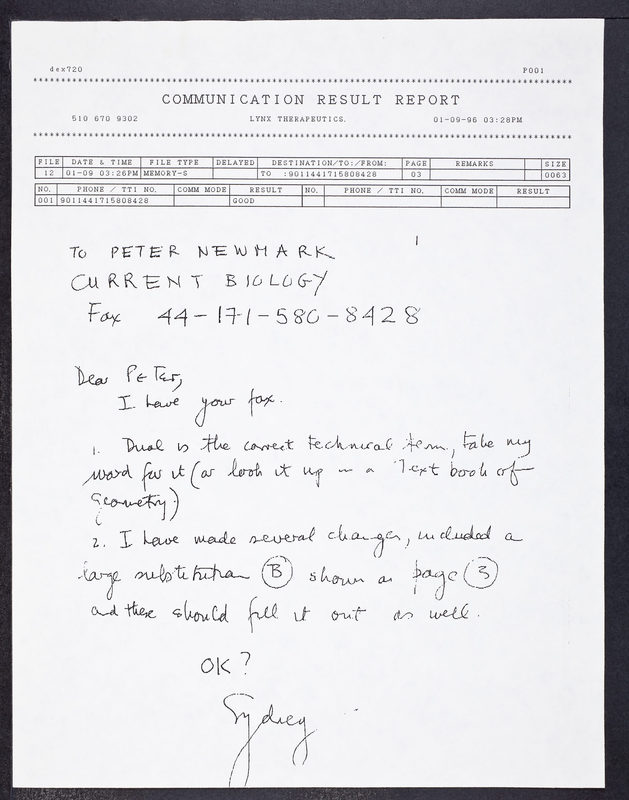 dex720 P001
COMMUNICATION RESULT REPORT
510 670 9302 LYNX THERAPEUTICS. 01-09-96 03:28PM
FILE DATE & TIME FILE TYPE DELAYED DESTINATION/TO:/FROM: PAGE REMARKS SIZE
12 01-09 03:26PM MEMORY-S TO :9011441715808428 03 0063
NO. PHONE / TTI NO. COMM MODE RESULT NO. PHONE / TTI NO. COMM MODE RESULT
001 9011441715808428 GOOD
1
TO PETER NEWMARK
CURRENT BIOLOGY
Fax 44-171-580-8428
Dear Peter,
I have your fax.
1. Dual is the correct technical term, take my
word for it (or look it up in a Text book of
Geometry)
2. I have made several changes, included a
large substitution B shown on page 3
and these should fill it out as well.
OK?
Sydney